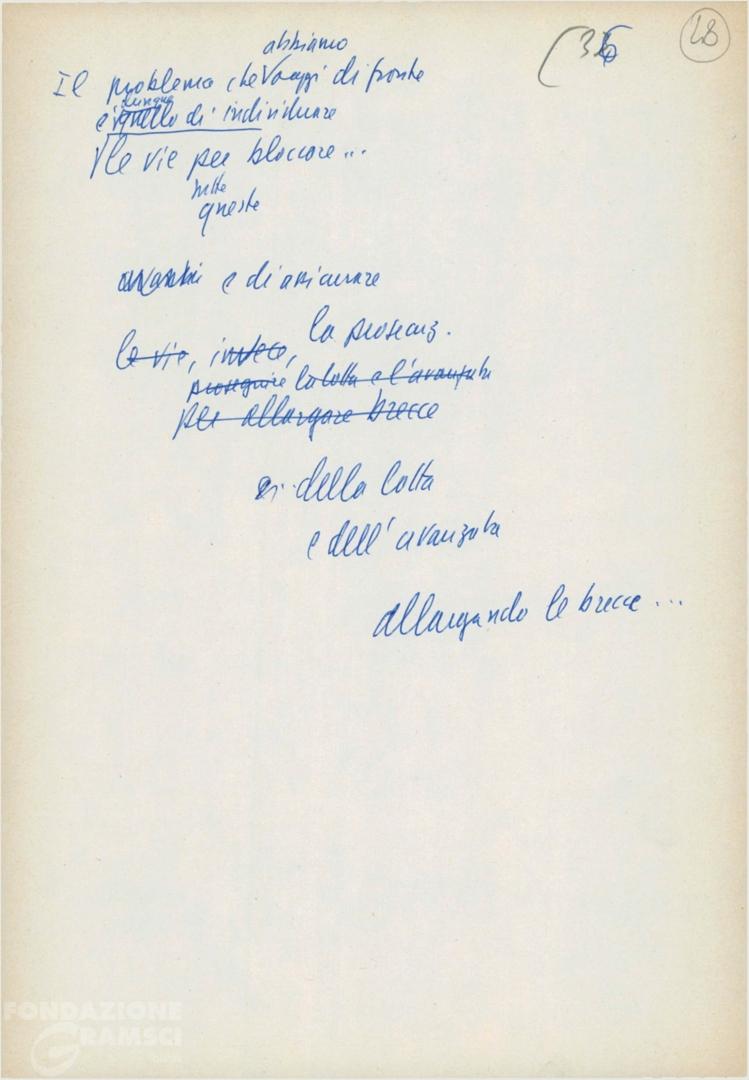 (36
28
abbiamo
Il problema che oggi di fronte
dunque
è quello di individuare
le vie per bloccare...
tutte
queste
e di assicurare
le vie, invece, la prosecuz.
proseguire la lotta e l'avanzata
per allargare brecce
della lotta
e dell'avanzata
allargando le brecce...
FONDAZIONE
GRAMSCI